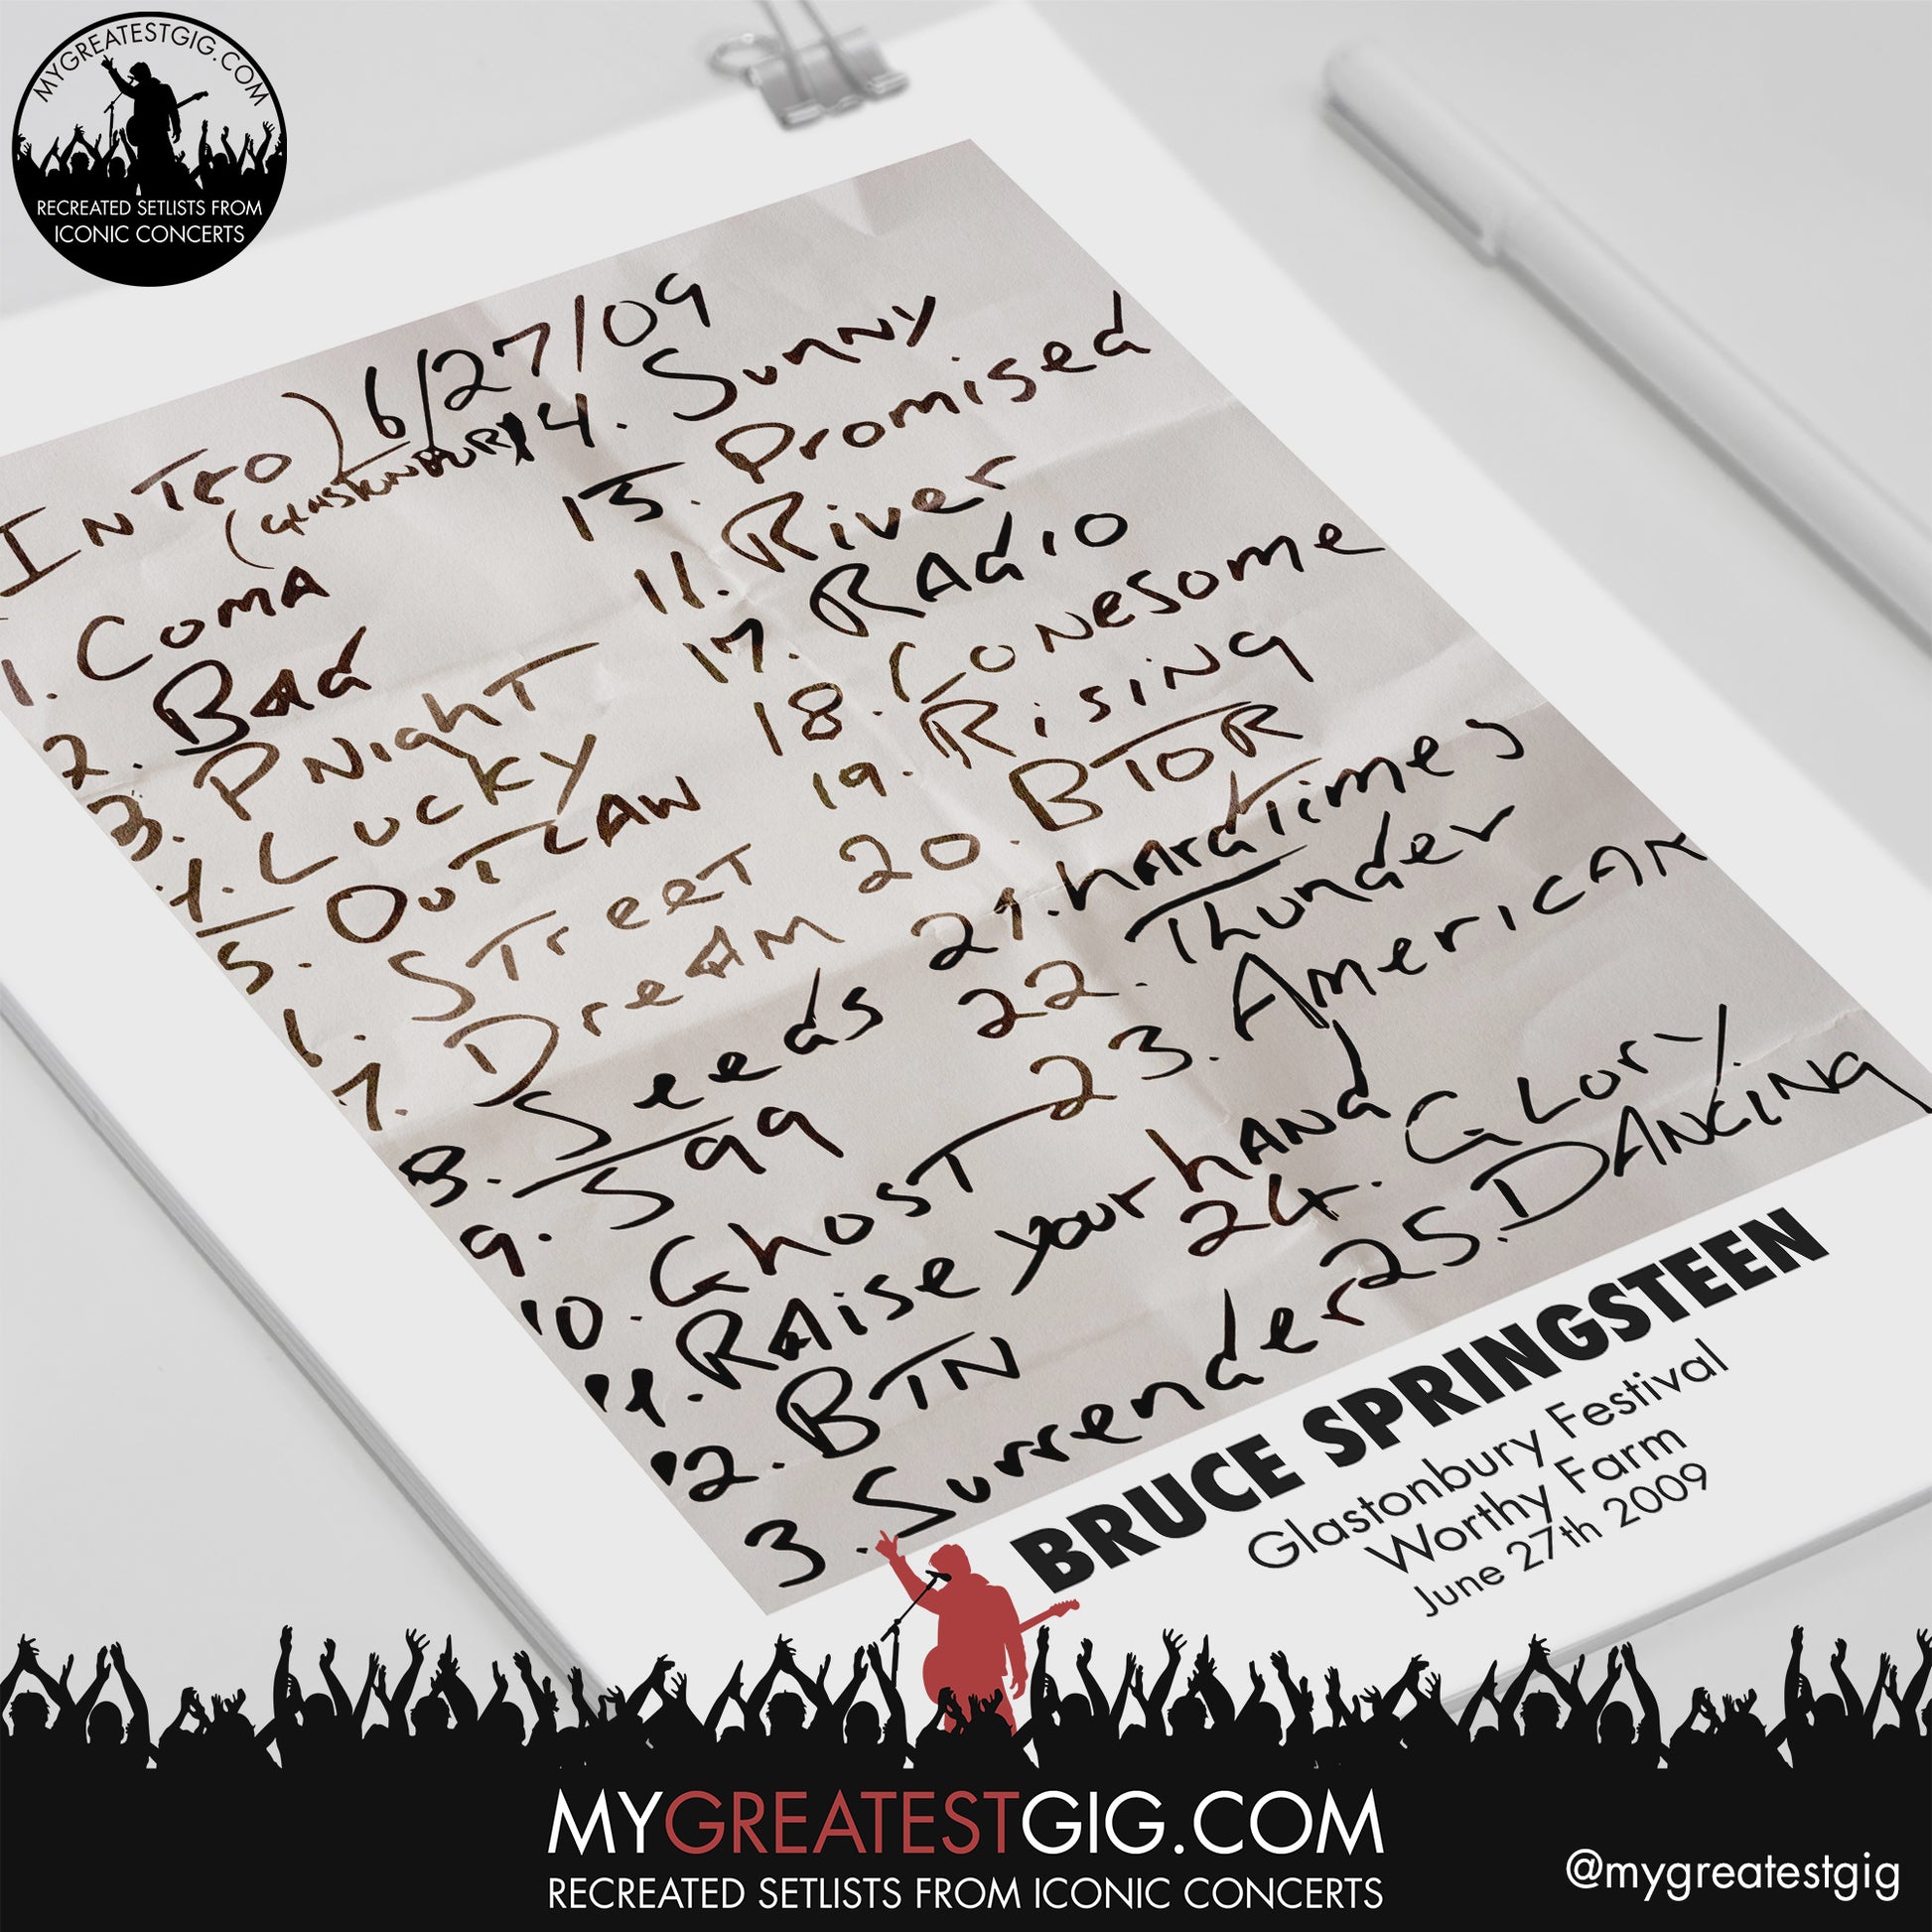 MYGREATESTGIG.COM
RECREATED SETLISTS FROM
ICONIC CONCERTS
INTro) 6/27/09
(GLASTONBURY)
1. ComA
2. BAd
3. P NighT
4. Lucky
5. OuTLAW
6. STreeT
7. DreAM
8. Seeds
9. J99
10. GhosT
11. RAise your hANd
12. BTN
3. Surrender
14. Sunny
15. Promised
16. River
17. RAdio
18. LoNesome
19. RisiNg
20. BTOR
21. hArdTimes
22. Thunder
23. AmericAN
24. GLory
25. DANCiNg
BRUCE SPRINGSTEEN
Glastonbury Festival
Worthy Farm
June 27th 2009
MYGREATESTGIG.COM
RECREATED SETLISTS FROM ICONIC CONCERTS
@mygreatestgig